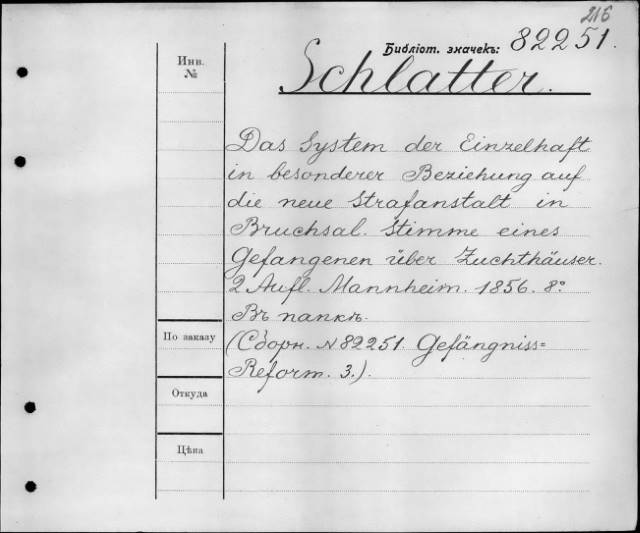 216
Библіот. значекъ: 82251.
Инв.
№
Schlatter.
Das System der Einzelhaft
in besonderer Beziehung auf
die neue Strafanstalt in
Bruchsal. Stimme eines
Gefangenen über Zuchthäuser.
2 Aufl. Mannheim. 1856. 8º
Въ папкѣ.
По заказу
(Сборн. № 82251. Gefängniss=
Reform. 3.).
Откуда
Цѣна